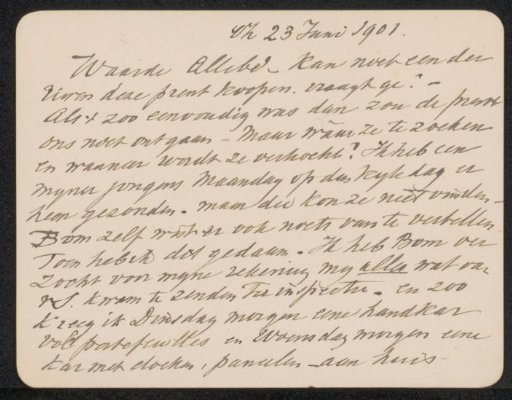 23 Juni 1901.
Waarde Allebé - Kan niet een der
Uwen deze prent koopen. vraagt ge? -
Als 't zoo eenvoudig was dan zou de prent
ons niet ontgaan - Maar waar ze te zoeken
en wanneer wordt ze verkocht? Ik heb een
myner jongens Maandag op den kykdag er
heen gezonden. maar die kon ze niet vinden -
Bom zelf wist er ook niets van te vertellen
Toen heb ik dit gedaan. Ik heb Bom ver
zocht voor myne rekening my alles wat van
kwam te zenden Ter inspectie. en zoo
kreeg ik Dinsdag morgen eene handkar
vol portefeuilles en Woensdag morgen eene
kar met doeken, paneelen - aan huis